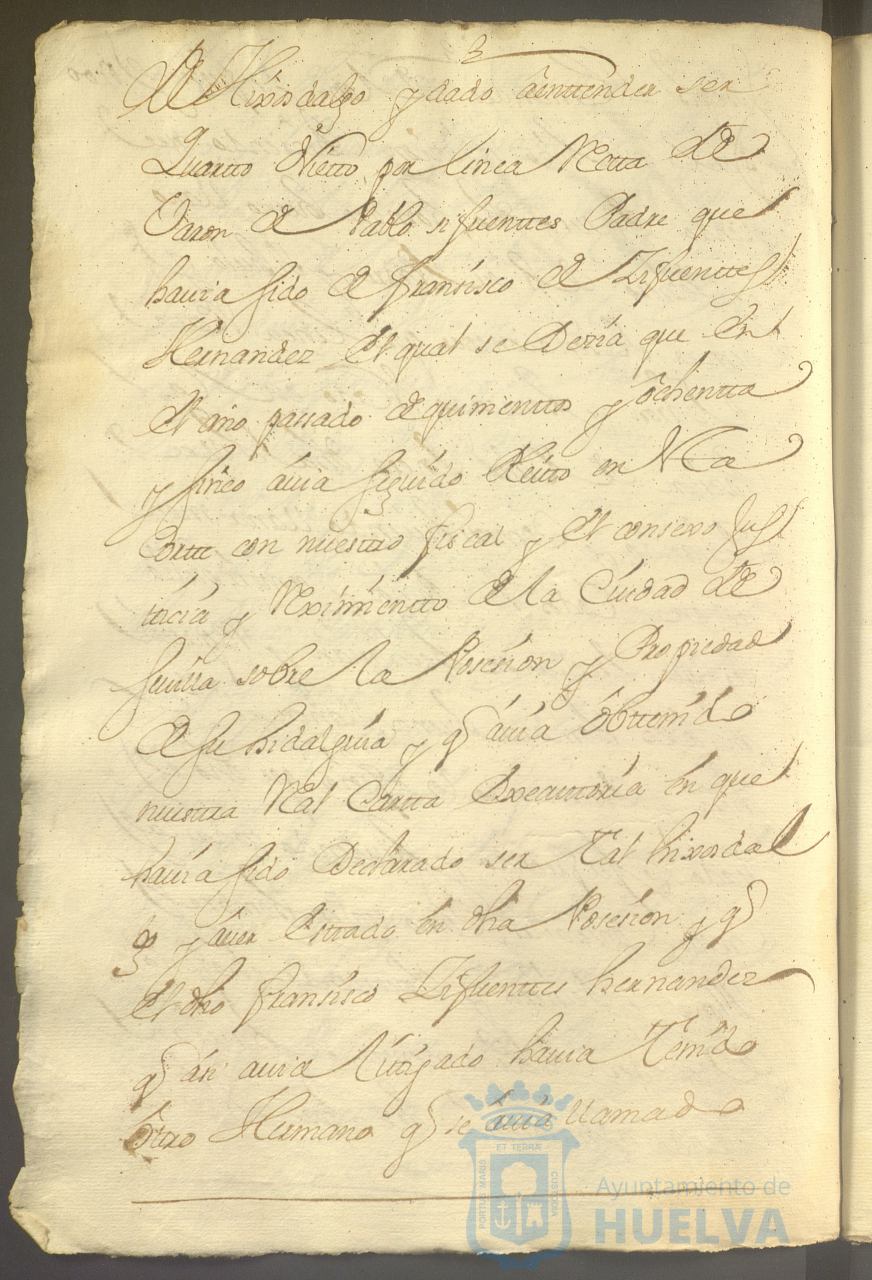 de Hixosdalgo y dado aenttender ser
Quartto Nietto por linea Rectta de
Varon de Pablo sifuenttes Padre que
havia sido de fransisco de Zifuenttes
Hernandez el qual se Dezia que en
el año passado de quinienttos y ochentta
y sinco avia seguido Pleitto en Ntra
Cortte con nuestro fiscal y el consexo Jus
ticia y Reximientto de la Ciudad de
sevilla sobre la Posesion y Propiedad
de su hidalguia y q avia obttenido
nuestra Real Cartta Executtoria en que
havia sido Declarado ser tal hixosdal
go y aver esttado en dha Posesion y q
el dho fransisco Zifuenttes hernandez
q asi avia littigado havia tenido
ottro Hermano q se avia llamado
ET TERRÆ
PORTUS MARIS
CUSTODIA
Ayuntamiento de
HUELVA